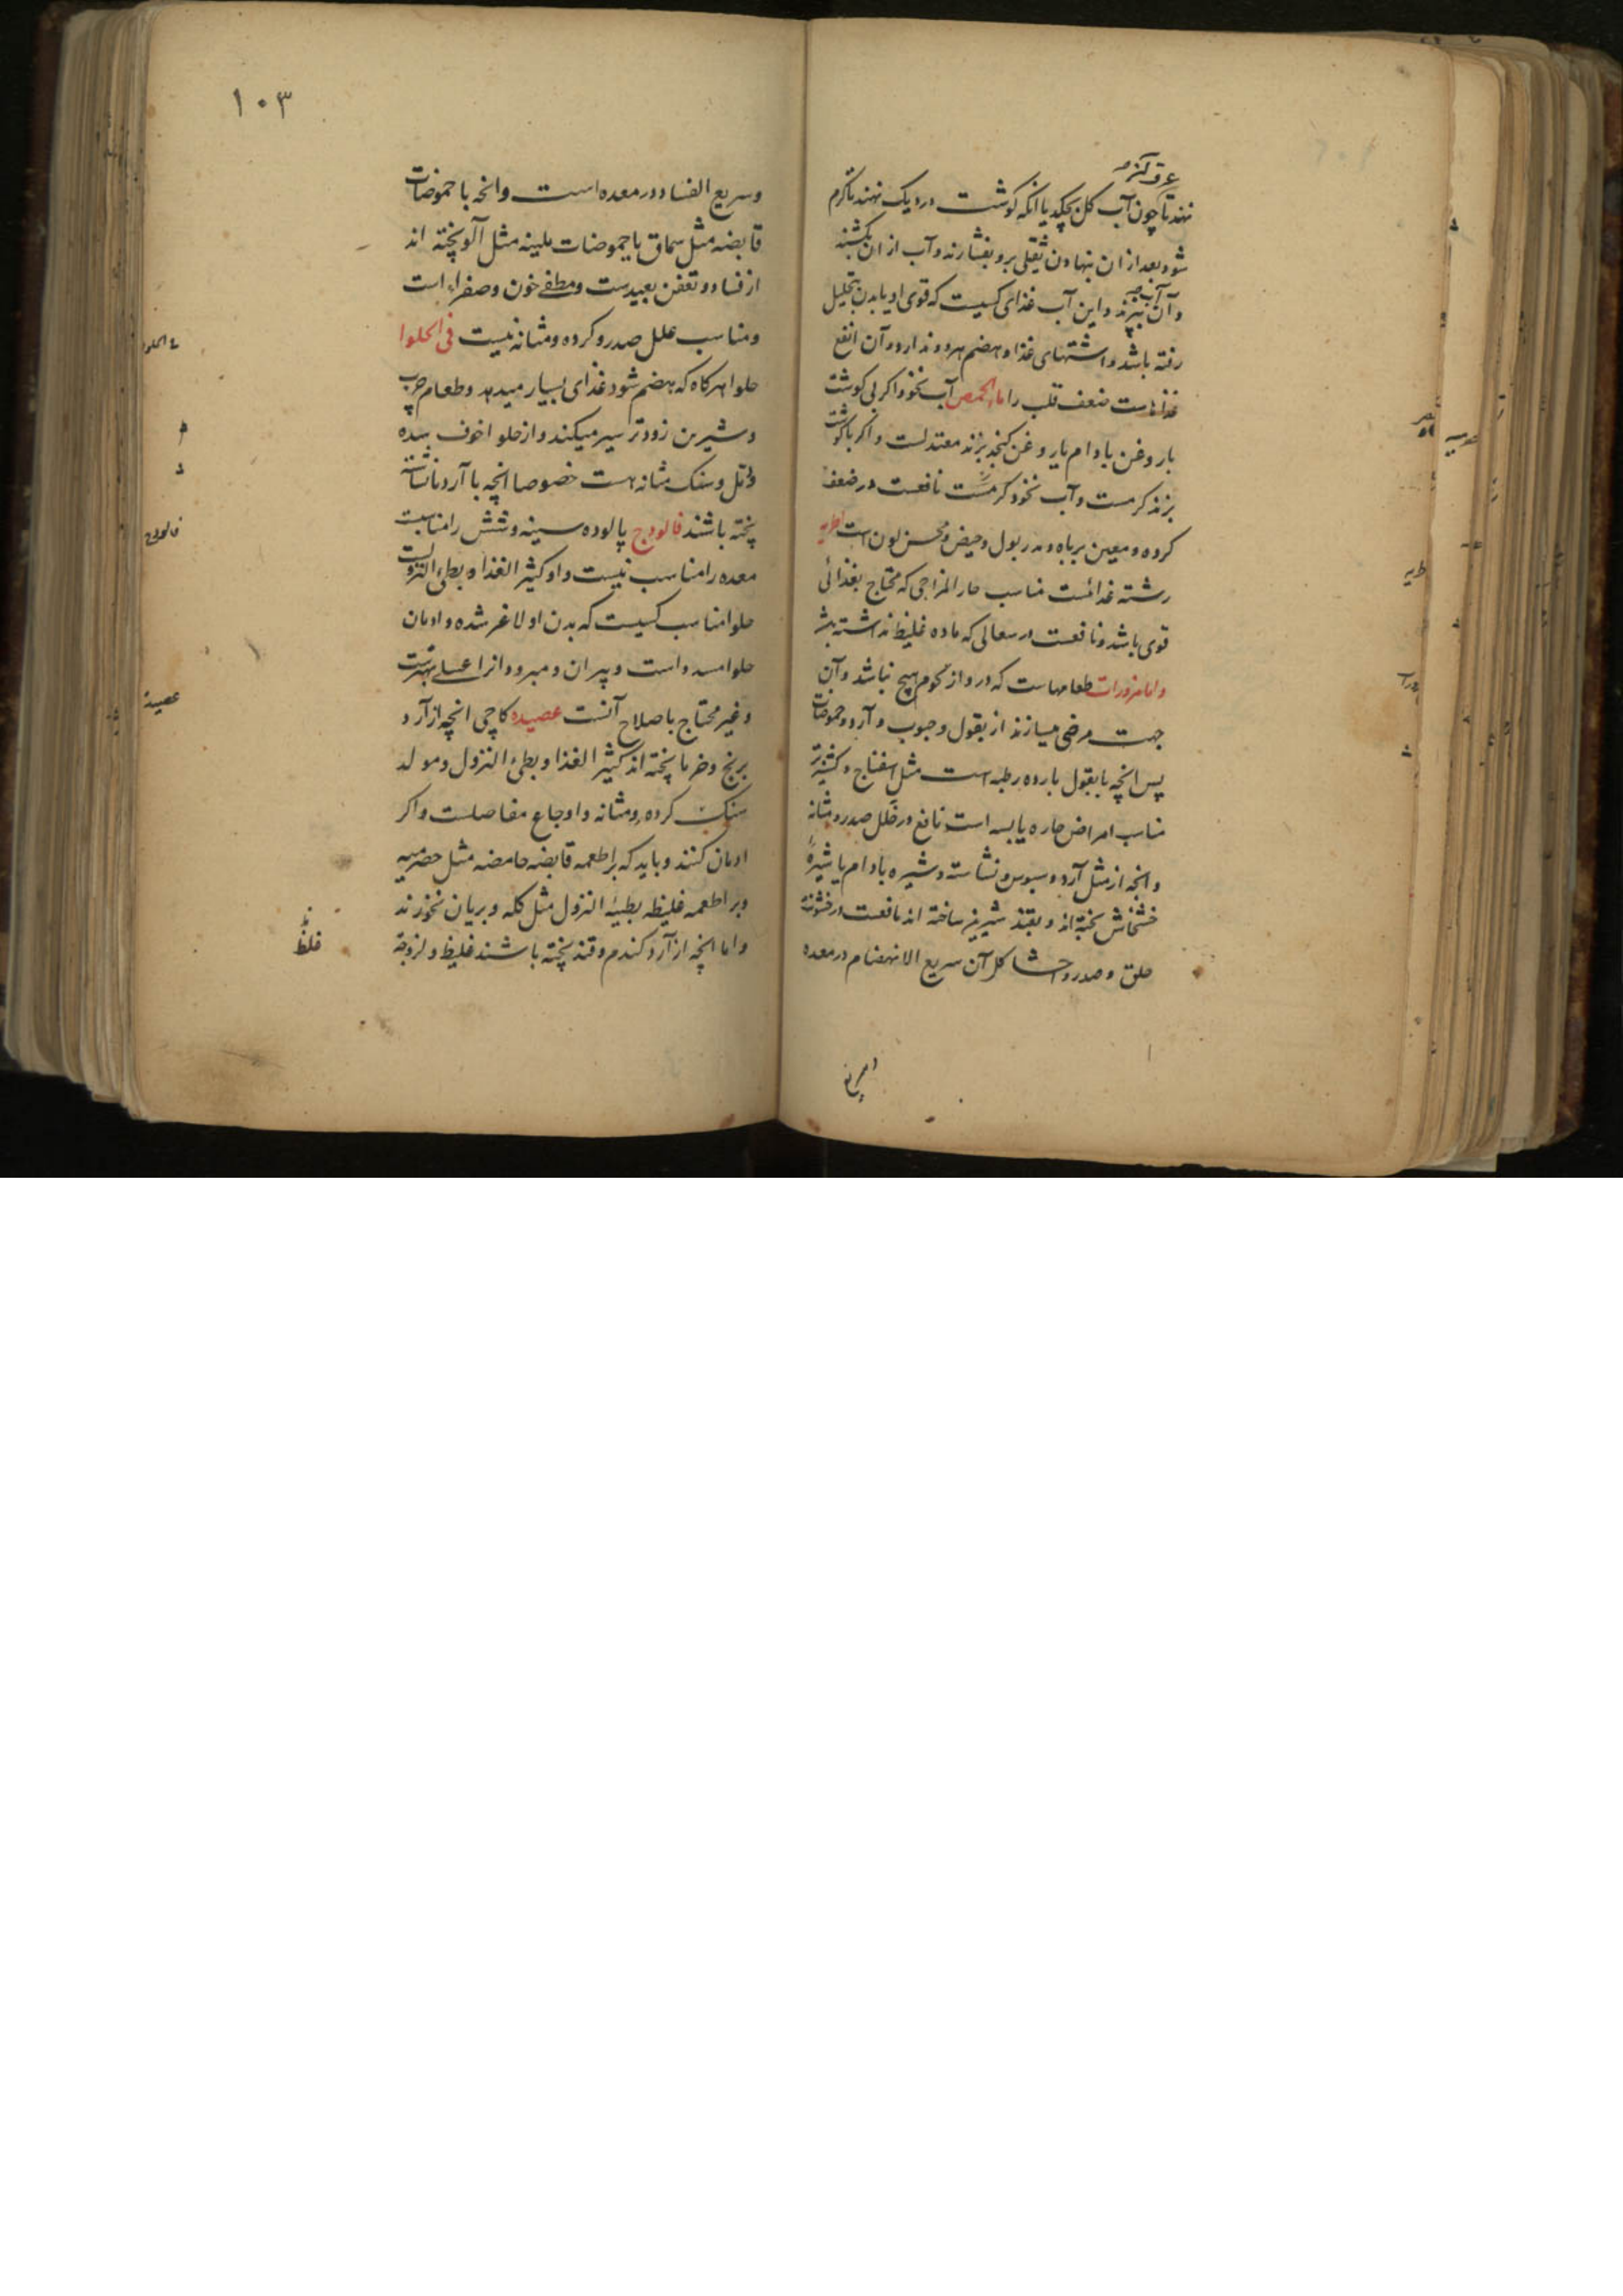 عرق کنند
نهند تا چون آب گل بچکد یا آنکه کوشت در دیک نهند تا کرم
شود بعد از ان بنهادن ثقلی برو بفشارند و آب از ان بکشند
و آن آب بپزند و این آب غذای کسیست که قوی او یا بدن بتحلیل
رفته باشد و اشتهای غذا و هضم هر دو ندارد و آن انفع
غذاهاست ضعف قلب را ماء الحمص آب نخود اکر بی کوشت
با روغن بادام یا روغن کنجد پزند معتدلست و اکر با کوشت
پزند کرمست و آب نخود کرمست نافعست در ضعف
کرده و معین بر باه و مدر بول و حیض و محسن لون است اطریه
رشته غذائست مناسب حار المزاجی که محتاج بغذائی
قوی باشد و نافعست در سعالی که ماده غلیظ نداشته باشد
و اما مزورات طعامهاست که درو از لحوم هیچ نباشد و آن
جهت مرضی میسازند از بقول و حبوب و آرد و حموضات
پس انچه با بقول بارده رطبه است مثل اسفناج و کشنیز تر
مناسب امراض حاره یابسه است و نافع در علل صدر و مثانه
و انچه از مثل آرد و سبوس و نشاسته و شیره بادام یا شیرهٔ
خشخاش پخته اند و بقند شیرین ساخته اند نافعست در خشونت
حلق و صدر و احشا لکن آن سریع الانهضام در معده
۱۰۳
وسریع الفساد در معده است وانچه با حموضات
قابضه مثل سماق یا حموضات ملینه مثل آلو پخته اند
از فساد و تعفن بعیدست و مطفی خون و صفراء است
و مناسب علل صدر و کرده و مثانه نیست فی الحلوا
حلوا هر کاه که هضم شود غذای بسیار میدهد و طعام چرب
و شیرین زودتر سیر میکند و از حلوا خوف سده
و سنک مثانه هست خصوصا انچه با آرد یا نشاسته
پخته باشند فالودج پالوده سینه و شش را مناسبست
معده را مناسب نیست و او کثیر الغذا و بطیء النزولست
حلوا مناسب کسیست که بدن او لاغر شده و ادمان
حلوا مسدد است و پیران و مبرودانرا عسلی بهترست
و غیر محتاج باصلاح آنست عصیده کاچی انچه از آرد
برنج و خرما پخته اند کثیر الغذا و بطیء النزول و مولد
سنک کرده و مثانه و اوجاع مفاصلست و اکر
ادمان کنند و باید که بر اطعمه قابضه حامضه مثل حصرمیه
و بر اطعمه غلیظه بطیئه النزول مثل کله و بریان نخورند
و اما انچه از آرد کندم و قند پخته باشند غلیظ و لزوجة
فی الحلوا
فالودج
عصیدة
غلظ